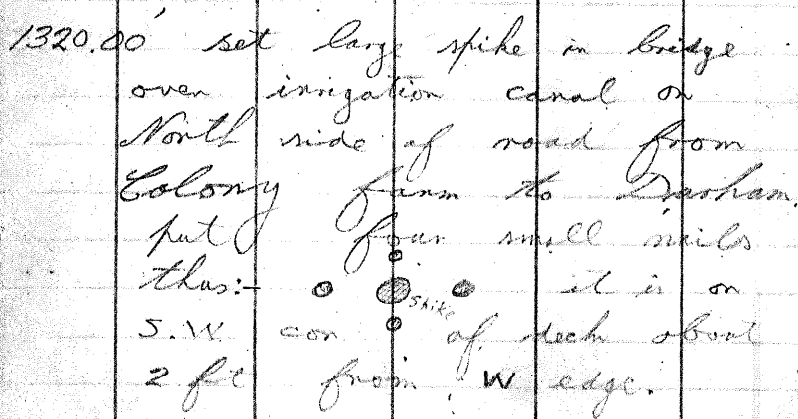 1320.00' set large spike in bridge
over irrigation canal on
North side of road from
Colony farm to Durham.
put four small nails
thus:- it is on
spike
S.W. cor of deck about
2 ft from W edge.